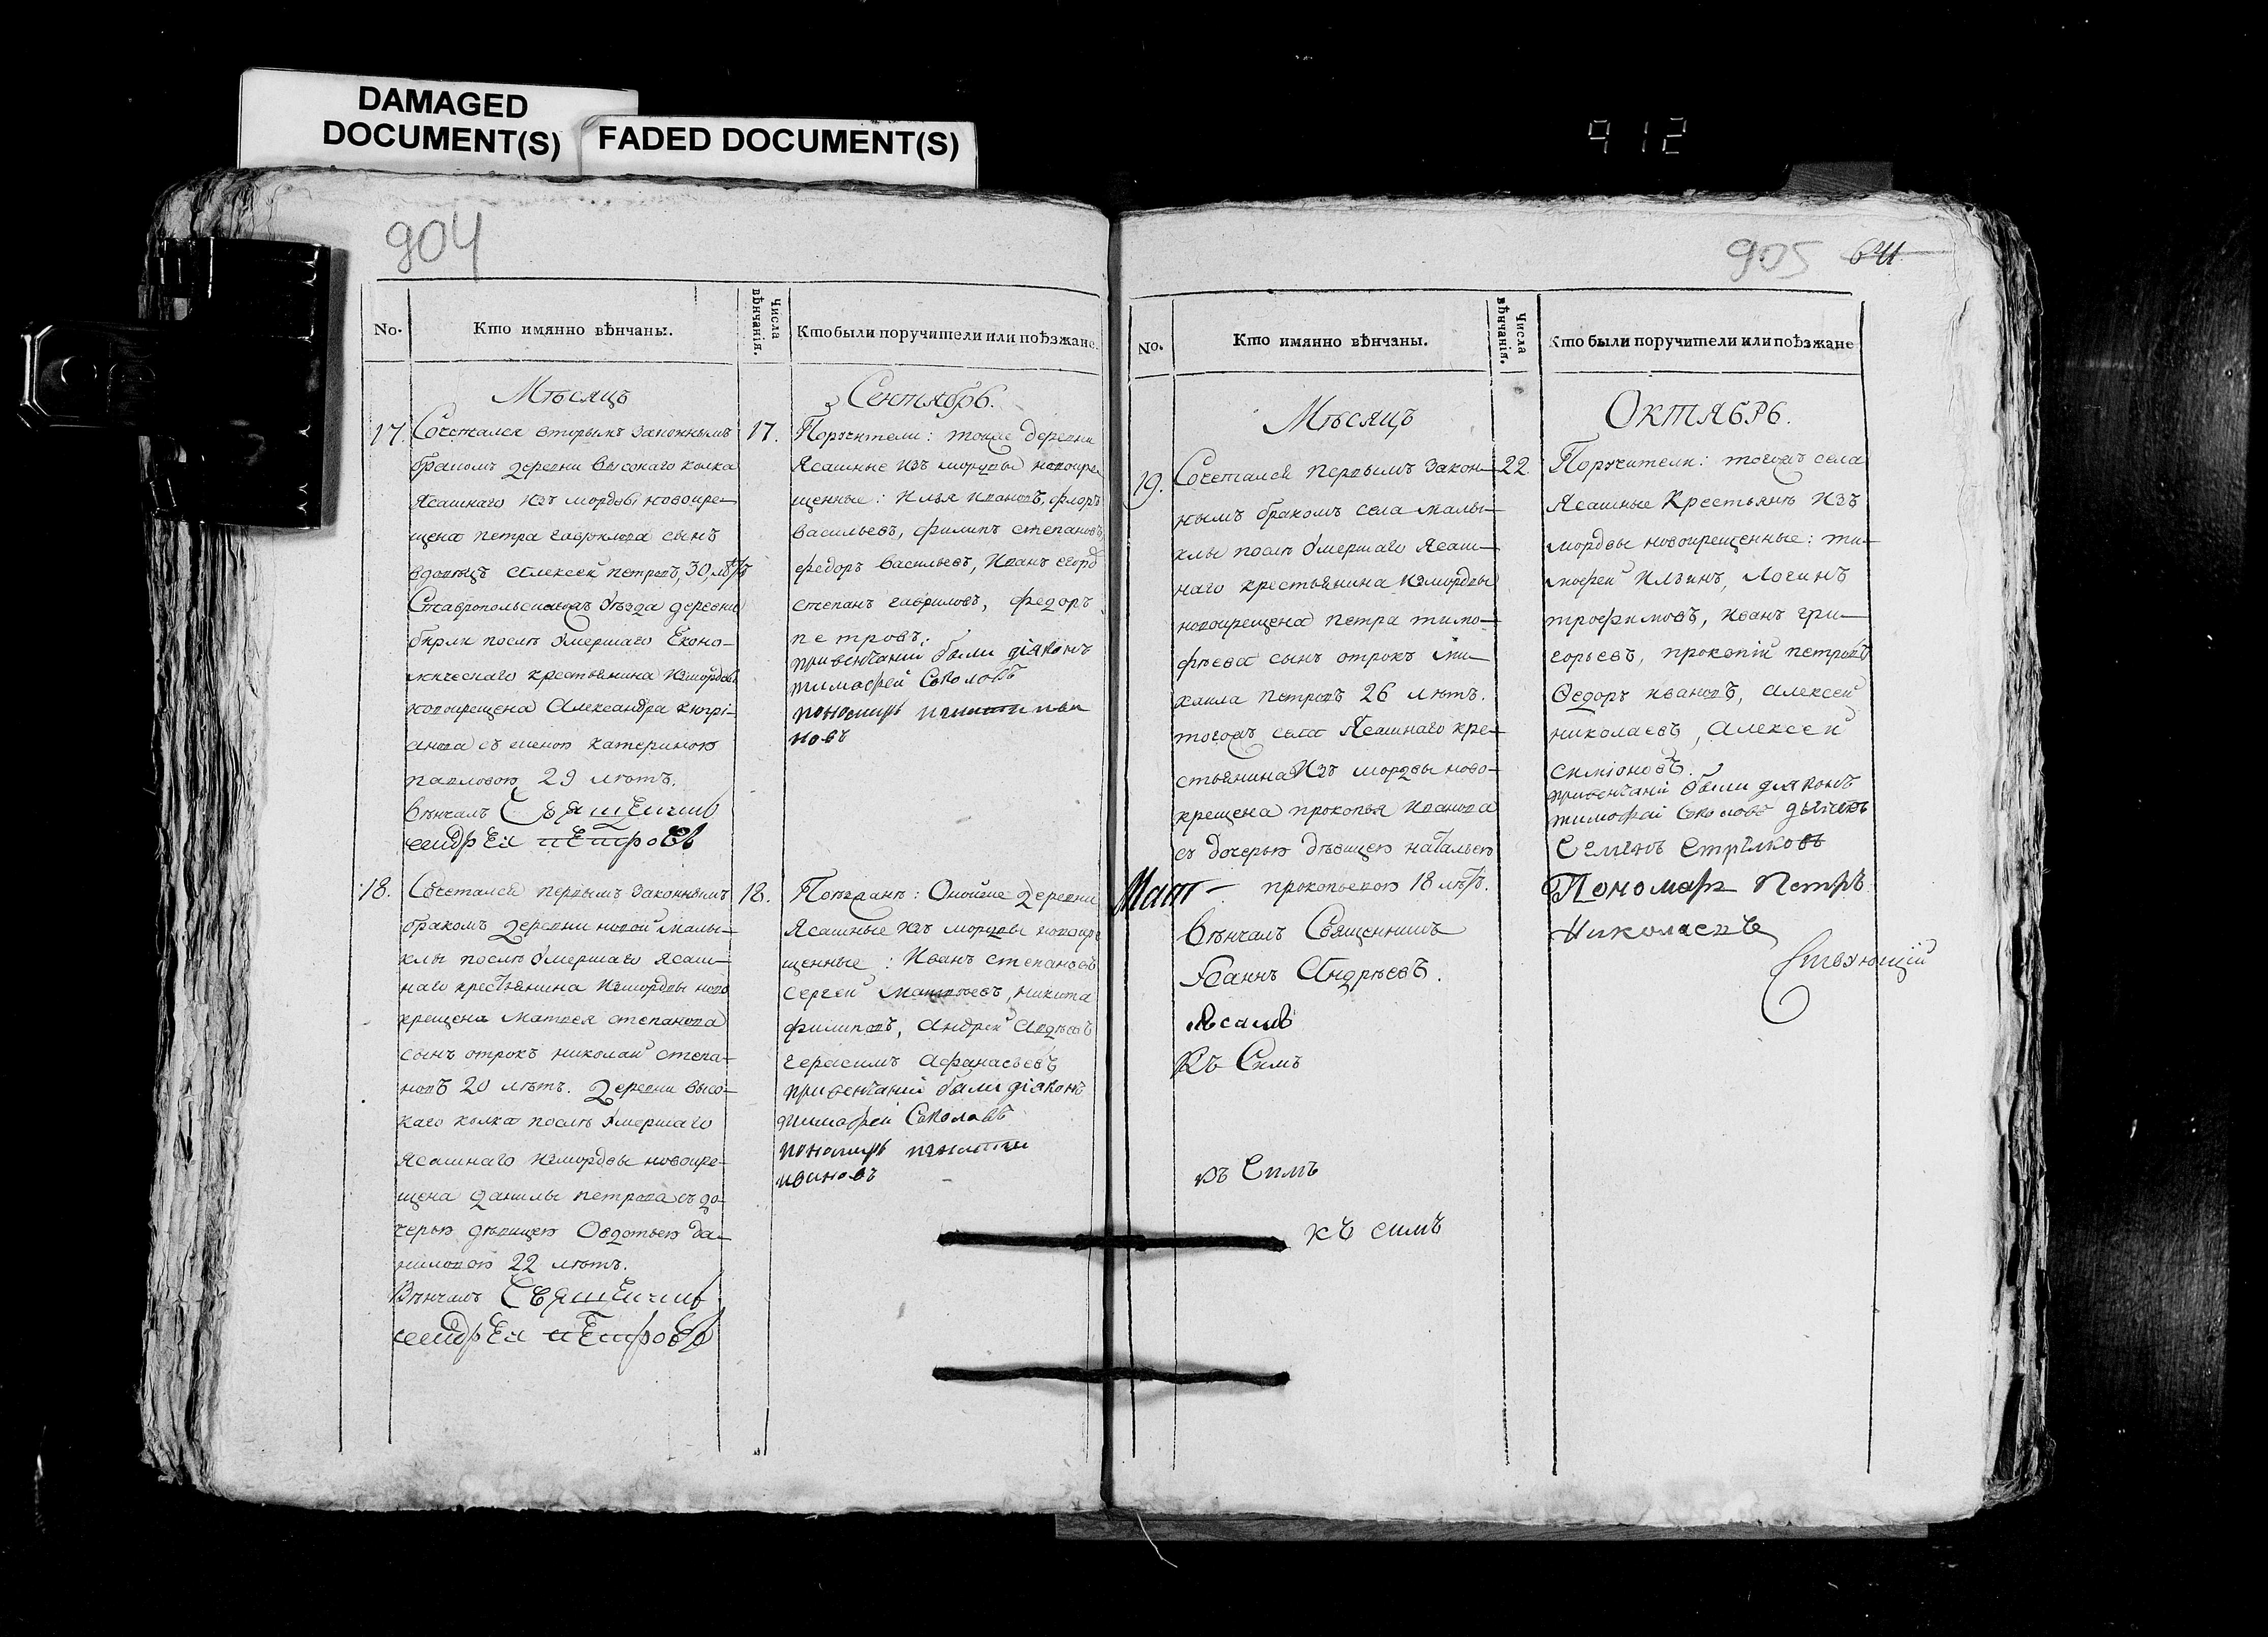 DAMAGED
DOCUMENT(S)
FADED DOCUMENT(S)
912
904
No.
Кто имянно вѣнчаны.
Числа
вѣнчанія.
Кто были поручители или поѣзжане.
Мѣсяцъ
Сентябрь.
17.
Сочетался вторымъ законнымъ
бракомъ деревни Высокаго колка
Ясашнаго изъ мордвы новокре-
щена Петра Гаврилова сынъ
вдовецъ Алексей Петровъ, 30 лѣтъ
Ставропольскагожъ Уѣзда деревни
бирли послѣ Умершаго Еконо-
мическаго крестьянина изъ мордвы
новокрещена Александра
съ женою Катериною
Павловою 29 лѣтъ.
Вѣнчалъ Священникъ
Андрей Петровъ
17.
Поручители: тоеже деревни
Ясашные изъ мордвы новокре
щенные: Илья Ивановъ, Флоръ
Васильевъ, Филипъ Степановъ,
Федоръ Васильевъ, Иванъ Егоровъ
Степанъ Гавриловъ, Федоръ
Петровъ.
при венчаніи были діаконъ
Тимофей Соколовъ
пономарь Ива
новъ
18.
Сочетался первымъ законнымъ
бракомъ деревни новой Малы-
клы послѣ Умершаго Ясаш-
наго крестьянина изъ мордвы ново
крещена Матвея Степанова
сынъ отрокъ Николай Степа-
новъ 20 лѣтъ. деревни Высо-
каго колка послѣ Умершаго
Ясашнаго изъ мордвы новокре-
щена Данилы Петрова съ до-
черью дѣвицею Овдотьею Да-
ниловою 22 лѣтъ.
Вѣнчалъ Священникъ
Андрей Петровъ
18.
Поѣзжанѣ: Оной же деревни
Ясашные изъ мордвы новокре
щенные: Иванъ Степановъ
Сергей Матвеевъ, Никита
Филиповъ, Андрей Авдѣевъ
Герасимъ Афанасьевъ
при венчаніи были діаконъ
Тимофей Соколовъ
пономарь
Ивановъ
905 641
No.
Кто имянно вѣнчаны.
Числа
вѣнчанія.
Кто были поручители или поѣзжане
Мѣсяцъ
Октябрь.
19.
Сочетался первымъ закон-
нымъ бракомъ села Малы-
клы послѣ Умершаго Ясаш-
наго крестьянина изъ мордвы
новокрещена Петра Тимо-
фѣева сынъ отрокъ Ми-
хаила Петровъ 26 лѣтъ.
тогожъ села Ясашнаго кре-
стьянина изъ мордвы ново-
крещена Прокопья Иванова
съ дочерью дѣвицею Натальею
Прокопьевою 18 лѣтъ.
Вѣнчалъ Священникъ
Іоаннъ Андрѣевъ.
Къ Симъ
въ Симъ
къ симъ
22
Поручители: тогожъ села
Ясашные Крестьянѣ изъ
мордвы новокрещенные: Ти-
мофей Ильинъ, Логинъ
Трофимовъ, Иванъ Гри-
горьевъ, Прокопій Петровъ
Ѳедоръ Ивановъ, Алексей
Николаевъ, Алексей
Симіоновъ.
при венчаніи были діаконъ
Тимофей Соколовъ дьячекъ
Семенъ Стрелковъ
Пономарь Петръ
Николаевъ